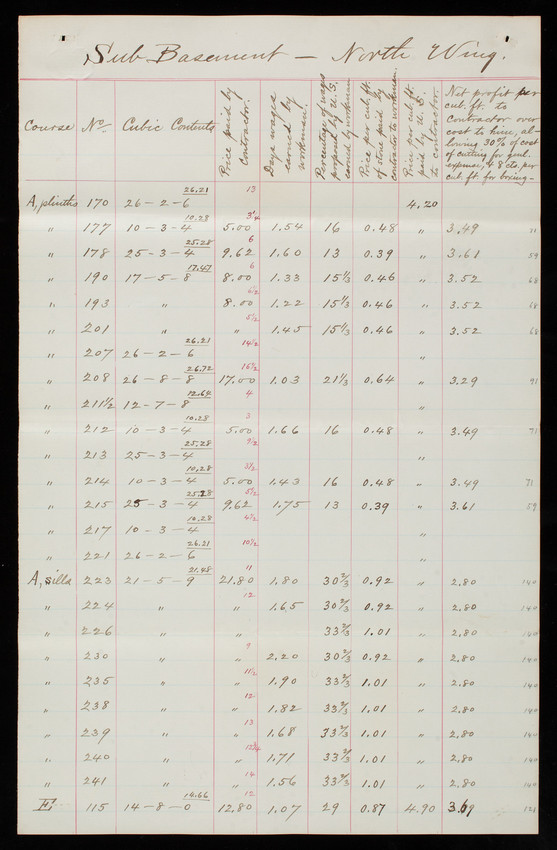 Sub Basement — North Wing.
Course No. Cubic Contents Price paid by Contractor. Days wages earned by workman. Percentage of wages proposed by U.S. earned by workman Price per cub. ft. of stone paid by contractor to workman. Price per cub. ft. paid by U.S. to contractor Net profit per cub. ft. to Contractor over cost to him, allowing 30% of cost of cutting for genl. expense, & 8 cts. per cub. ft. for boxing—
26.21 13
A, plinths 170 26-2-6 4.20
10.28 3¼
" 177 10-3-4 5.00 1.54 16 0.48 " 3.49 71
25.28 6
" 178 25-3-4 9.62 1.60 13 0.39 " 3.61 59
17.47 6
" 190 17-5-8 8.00 1.33 15⅓ 0.46 " 3.52 68
6½
" 193 " 8.00 1.22 15⅓ 0.46 " 3.52 68
5½
" 201 " " 1.45 15⅓ 0.46 " 3.52 68
26.21 14½
" 207 26-2-6 "
26.72 16½
" 208 26-8-8 17.00 1.03 21⅓ 0.64 " 3.29 91
12.64 4
" 211½ 12-7-8 "
10.28 3
" 212 10-3-4 5.00 1.66 16 0.48 " 3.49 71
25.28 9½
" 213 25-3-4 "
10.28 3½
" 214 10-3-4 5.00 1.43 16 0.48 " 3.49 71
25.28 5½
" 215 25-3-4 9.62 1.75 13 0.39 " 3.61 59
10.28 4½
" 217 10-3-4 "
26.21 10½
" 221 26-2-6 "
21.48 11
A, sills 223 21-5-9 21.80 1.80 30⅔ 0.92 " 2.80 140
12
" 224 " " 1.65 30⅔ 0.92 " 2.80 140
" 226 " " 33⅔ 1.01 " 2.80 140
9
" 230 " " 2.20 30⅔ 0.92 " 2.80 140
11½
" 235 " " 1.90 33⅔ 1.01 " 2.80 140
12
" 238 " " 1.82 33⅔ 1.01 " 2.80 140
13
" 239 " " 1.68 33⅔ 1.01 " 2.80 140
12¾
" 240 " " 1.71 33⅔ 1.01 " 2.80 140
14
" 241 " " 1.56 33⅔ 1.01 " 2.80 140
14.66 12
E 115 14-8-0 12.80 1.07 29 0.87 4.90 3.69 121